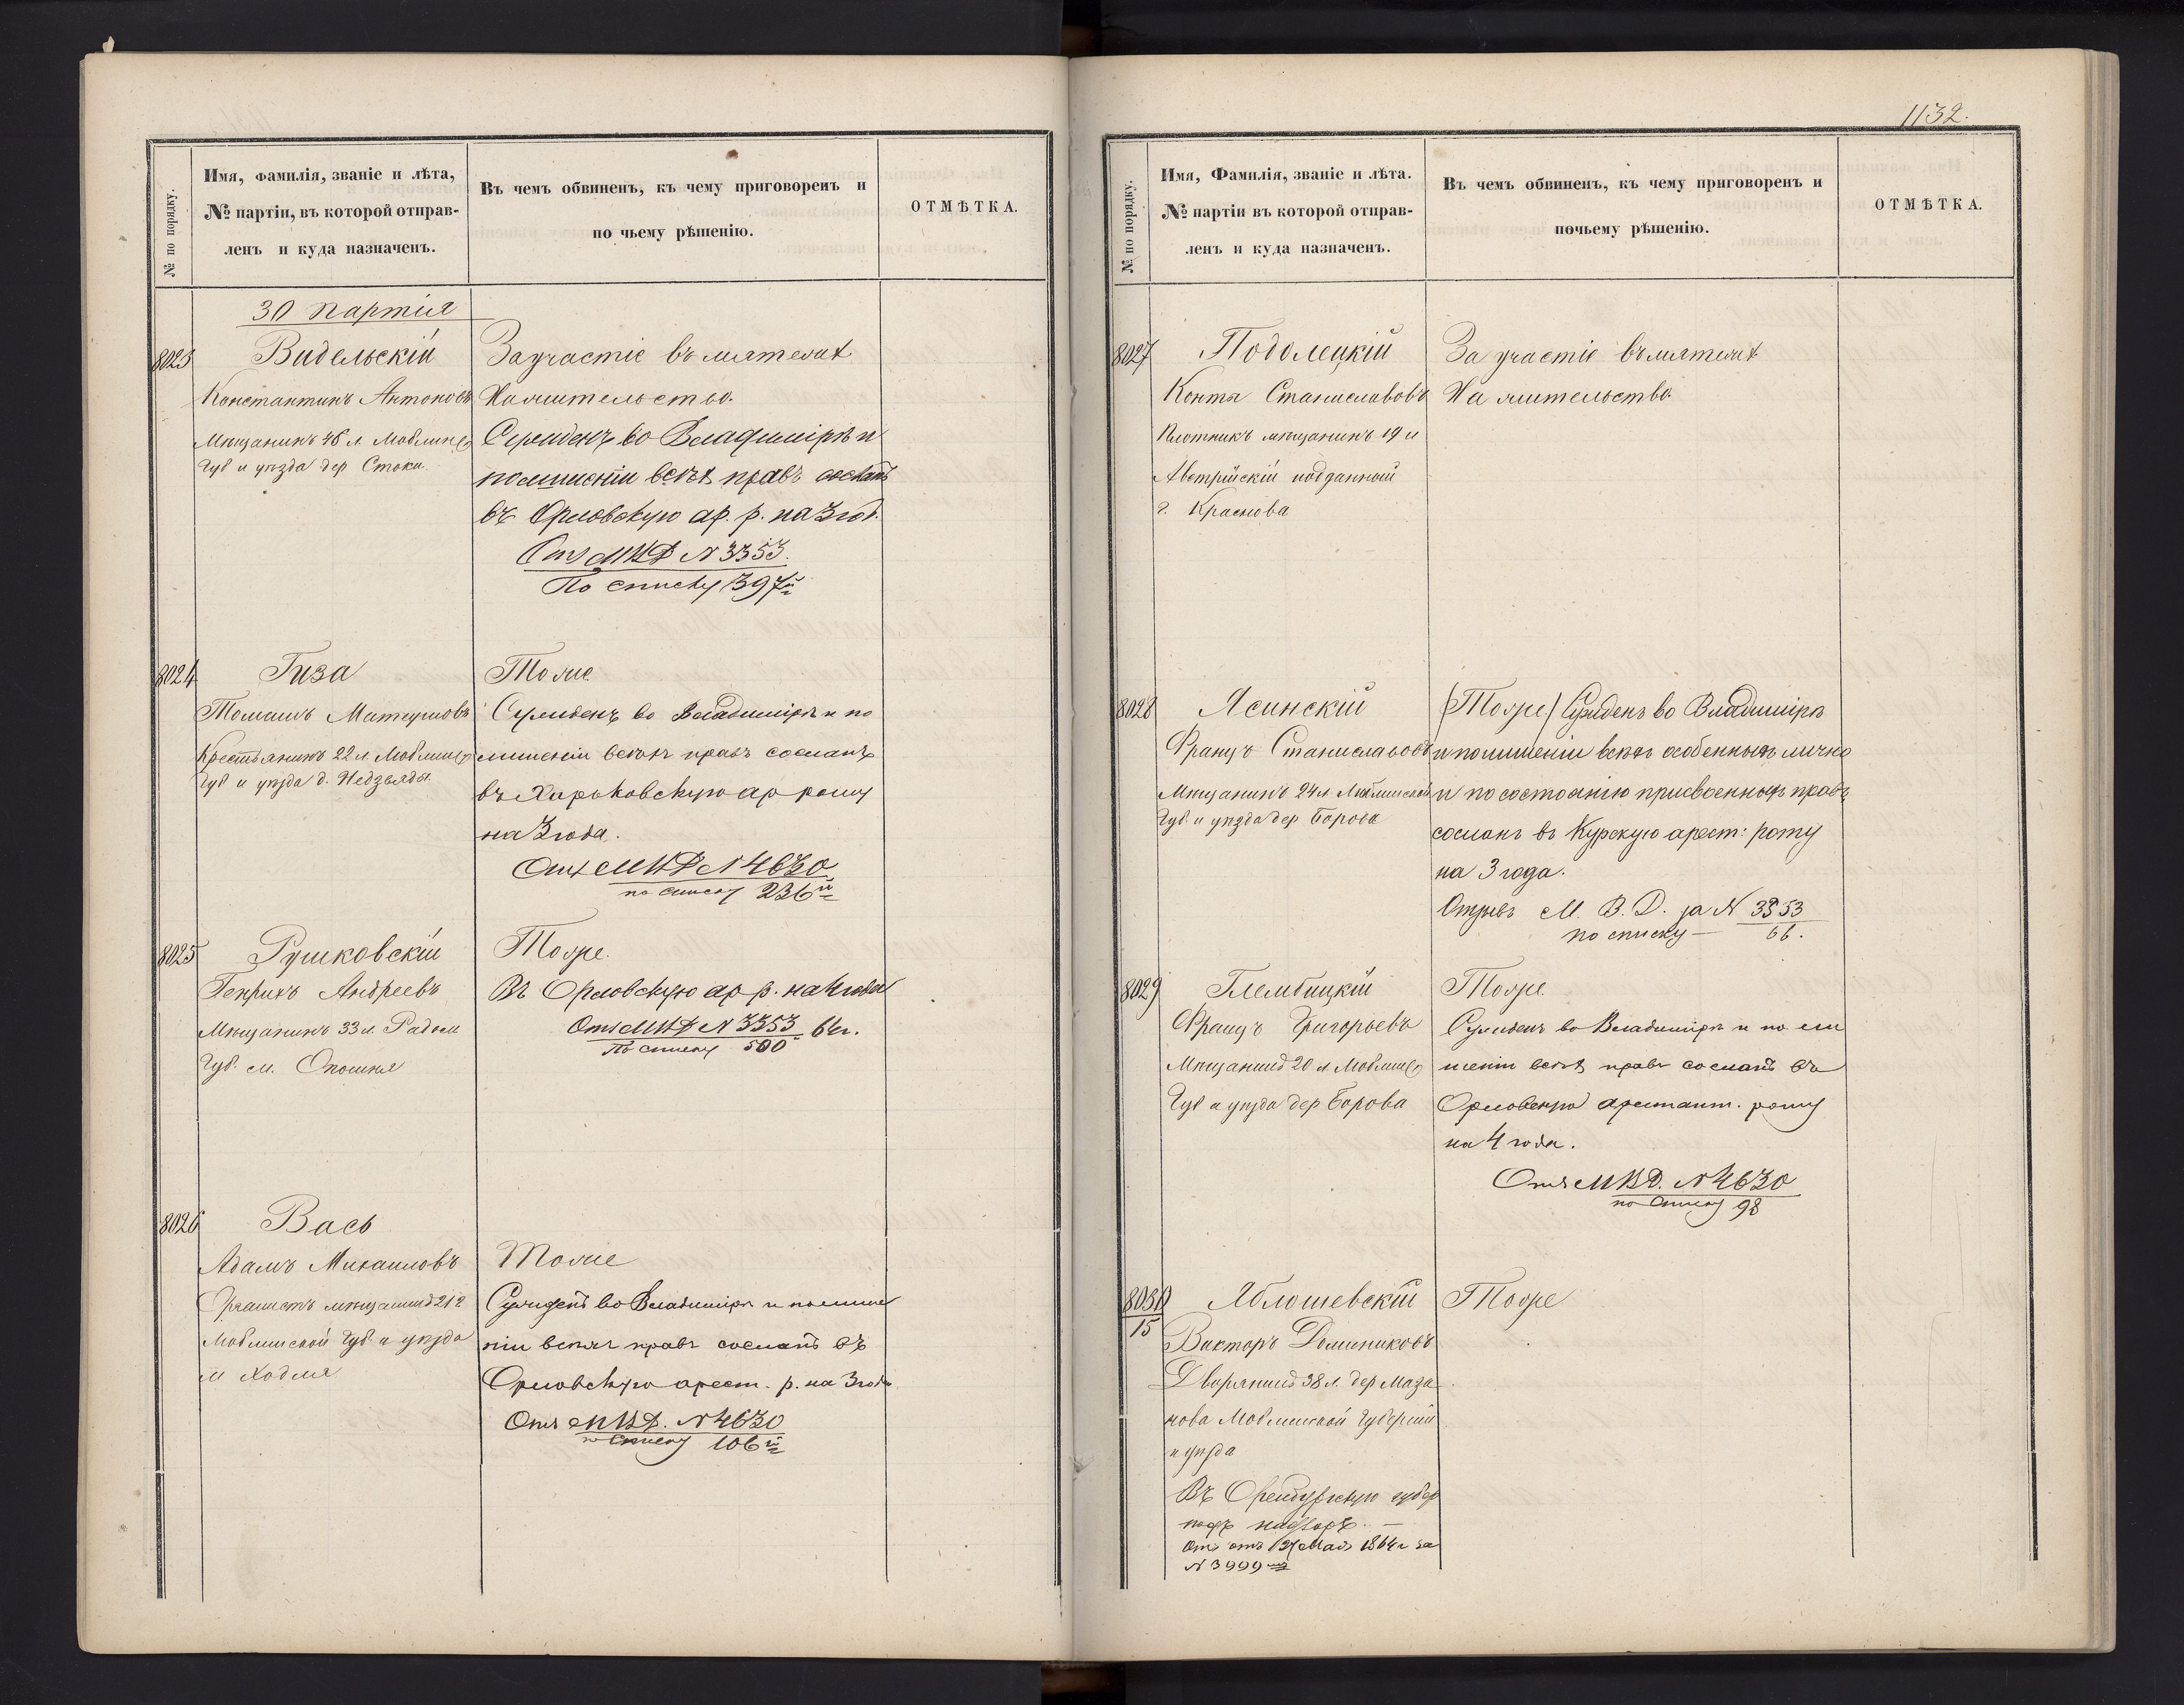 № по порядку.
Имя, Фамилія, званіе и лѣта,
№ партіи, въ которой отправ-
ленъ и куда назначенъ.
Въ чемъ обвиненъ, къ чему приговоренъ и
по чьему рѣшенію.
ОТМѢТКА.
30 партія
8023
Видельскій
Константинъ Антоновъ
Мѣщанинъ 46 л. Люблинс
Губ и уѣзда дер Стоки
За участіе въ мятежѣ
На жительство.
Сужденъ во Владимірѣ и
по лишеніи всѣхъ правъ сосланъ
въ Орловскую ар. р. на 3 год.
Отз МВД N 3353.
По списку 397й
8024
Гиза
Томашъ Матеушовъ
Крестьянинъ 22 л. Люблинс
Губ и уѣзда д. Недзвяды
Тоже
Сужденъ во Владимірѣ и по
лишеніи всѣхъ правъ сосланъ
въ Харьковскую ар роту
на 3 года.
Отз МВД N 4630
по списку 236й
8025
Рушковскій
Генрихъ Андреевъ
Мѣщанинъ 33 л. Радом
Губ. м. Опошня
Тоже.
Въ Орловскую ар р. на 4 года
Отз МВД N 3353 64г.
По списку 500
8026
Вась
Адамъ Михаиловъ
Органистъ мѣщанинъ 21 г
Люблинской Губ. и уѣзда
м Ходля
Тоже
Сужденъ во Владимірѣ и по лише
ніи всѣхъ правъ сосланъ въ
Орловскую арест. р. на 3 года
Отз МВД. N 4630
по списку 106й
1132.
№ по порядку.
Имя, Фамилія, званіе и лѣта.
№ партіи въ которой отправ-
ленъ и куда назначенъ.
Въ чемъ обвиненъ, къ чему приговоренъ и
почьему рѣшенію.
ОТМѢТКА.
8027
Подолецкій
Конты Станиславовъ
Плотникъ мѣщанинъ 19 л
Австрійскій подданный
г. Краснова
За участіе въ мятежѣ
На жительство.
8028
Ясинскій
Францъ Станиславовъ
Мѣщанинъ 24 л Люблинской
Губ. и уѣзда дер Борова
(Тоже) Сужденъ во Владимірѣ
и по лишеніи всѣхъ особенныхъ лично
и по состоянію присвоенныхъ правъ,
сосланъ въ Курскую арест: роту
на 3 года.
Отзывъ М. В. Д. за N 3353
по списку — 66.
8029
Глембицкій
Францъ Григорьевъ
Мѣщанинъ 20 л Люблинс
Губ и уѣзда дер Борова
Тоже.
Сужденъ во Владимірѣ и по ли
шеніи всѣхъ правъ сосланъ въ
Орловскую арестант. роту
на 4 года.
Отз МВД. N 4630
по списку 98
8030
15
Яблошевскій
Викторъ Доминиковъ
Дворянинъ 38 л. дер Маза
нова Люблинской Губерніи
и уѣзда
Въ Оренбургскую губер
подъ надзоръ. —
Отз отъ 27 Мая 1864 г за
N 3999
Тоже